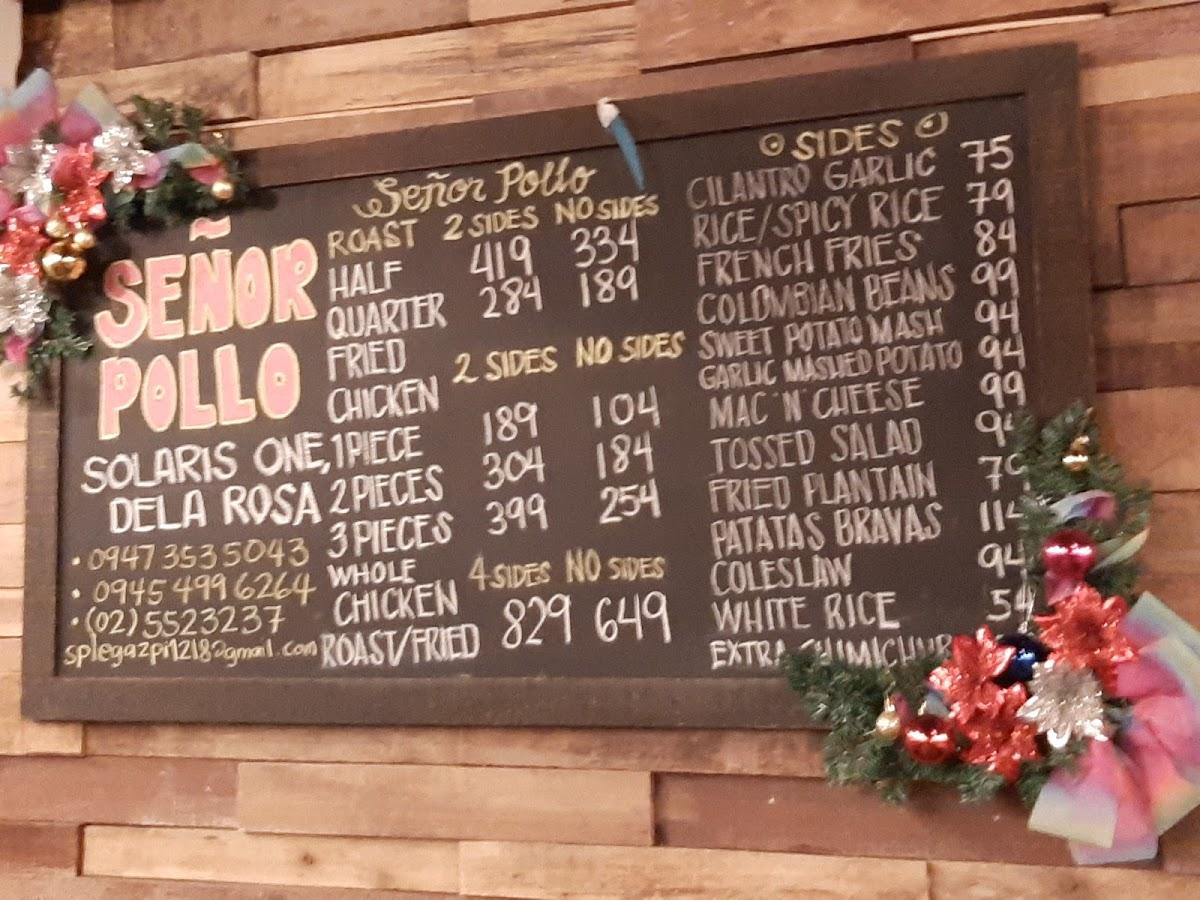 SEÑOR
POLLO
SOLARIS ONE,
DELA ROSA
• 0947 353 5043
• 0945 499 6264
• (02) 5523237
splegazpi1218@gmail.com
Señor Pollo
ROAST 2 SIDES NO SIDES
HALF 419 334
QUARTER 284 189
FRIED
CHICKEN 2 SIDES NO SIDES
1 PIECE 189 104
2 PIECES 304 184
3 PIECES 399 254
WHOLE 4 SIDES NO SIDES
CHICKEN
ROAST/FRIED 829 649
SIDES
CILANTRO GARLIC 75
RICE/SPICY RICE 79
FRENCH FRIES 84
COLOMBIAN BEANS 99
SWEET POTATO MASH 94
GARLIC MASHED POTATO 94
MAC 'N' CHEESE 99
TOSSED SALAD
FRIED PLANTAIN
PATATAS BRAVAS
COLESLAW 94
WHITE RICE
EXTRA